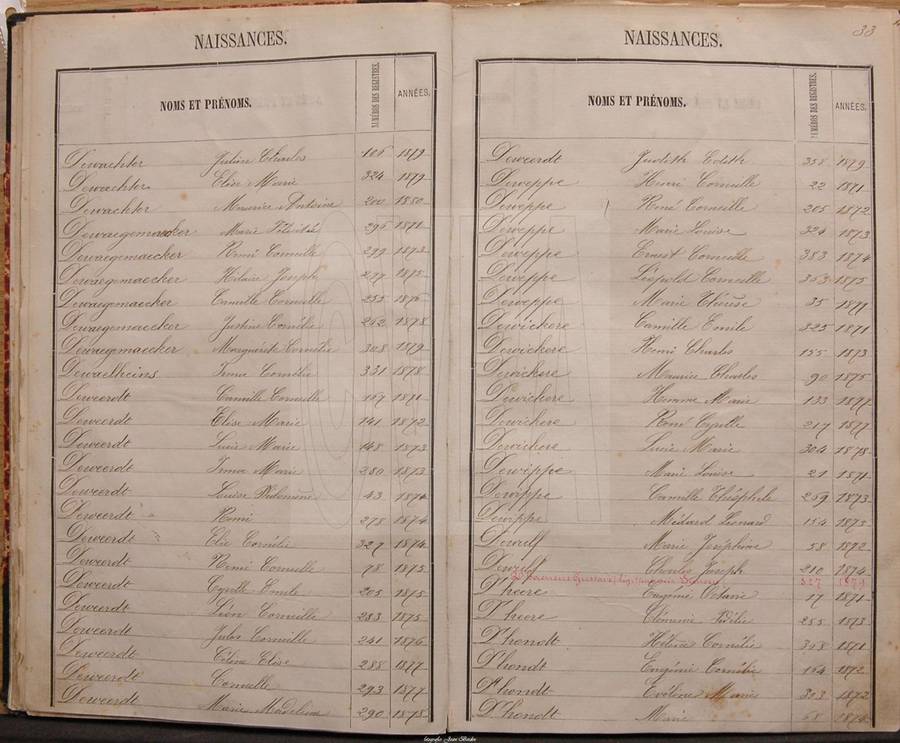 NAISSANCES.
NOMS ET PRÉNOMS. NUMÉROS DES REGISTRES. ANNÉES.
Dewachter Julien Charles 106 1879
Dewachter Elise Marie 324 1879
Dewachter Maurice Antoine 200 1880
Dewaegemaecker Marie 296 1871
Dewaegemaecker Remi Corneille 299 1873
Dewaegemaecker Hilaire Joseph 277 1875
Dewaegemaecker Camille Corneille 255 1876
Dewaegemaecker Justine Cornélie 262 1878
Dewaegemaecker Marguerite Cornélie 308 1879
Dewaelheins Irma Cornélie 331 1878
Deweerdt Camille Corneille 107 1871
Deweerdt Elise Marie 141 1872
Deweerdt Lucie Marie 148 1873
Deweerdt Irma Marie 280 1873
Deweerdt Louise Philomène 43 1874
Deweerdt Remi 278 1874
Deweerdt Elie Cornélie 327 1874
Deweerdt Remi Corneille 78 1875
Deweerdt Cyrille Emile 205 1875
Deweerdt Léon Corneille 283 1875
Deweerdt Jules Corneille 241 1876
Deweerdt Célina Elise 288 1877
Deweerdt Camille 293 1877
Deweerdt Marie Madeleine 290 1878
NAISSANCES. 33
NOMS ET PRÉNOMS. NUMÉROS DES REGISTRES. ANNÉES.
Deweerdt Judith Edith 358 1879
Deweppe Henri Corneille 22 1871
Deweppe René Corneille 205 1872
Deweppe Marie Louise 324 1873
Deweppe Ernest Corneille 383 1874
Deweppe Léopold Corneille 353 1875
Deweppe Marie Thérèse 35 1877
Dewickere Camille Emile 325 1871
Dewickere Henri Charles 155 1873
Dewickere Maurice Charles 90 1875
Dewickere Hermine Marie 133 1877
Dewickere René Cyrille 217 1877
Dewickere Lucie Marie 304 1878
Dewippe Marie Louise 21 1871
Dewippe Camille Théophile 259 1873
Dewippe Médard Léonard 154 1873
Dewulf Marie Joséphine 58 1872
Dewulf Charles Joseph 210 1874
Gustave 327 1879
D'heere Eugénie Octavie 17 1871
D'heere Clémence 255 1873
D'hondt Hélène Cornélie 358 1871
D'hondt Eugénie Cornélie 154 1872
D'hondt Evélina Marie 303 1872
D'hondt Marie 68 1874